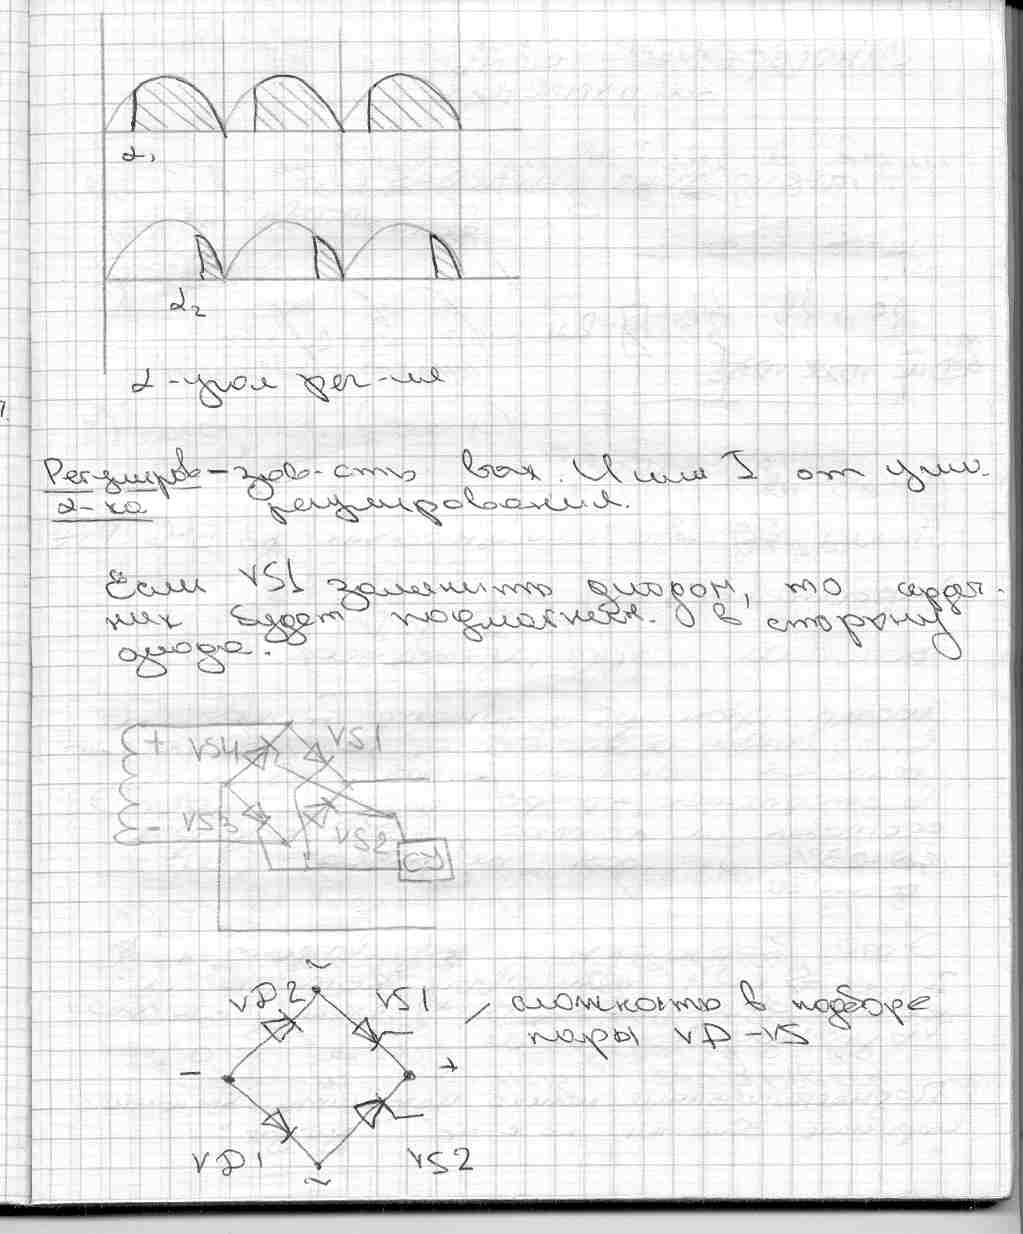 α₁
α₂
α - угол рег-ия
Регулиров - зав-сть вых. U или I от угла
х-ка регулирования.
Если VS1 заменить диодом, то сердеч-
ник будет подмагнич. в сторону
диода.
+ VS4 VS1
- VS3 VS2
СУ
~
VD2 VS1 сложность в подборе
пары VD-VS
- +
VD1 VS2
~